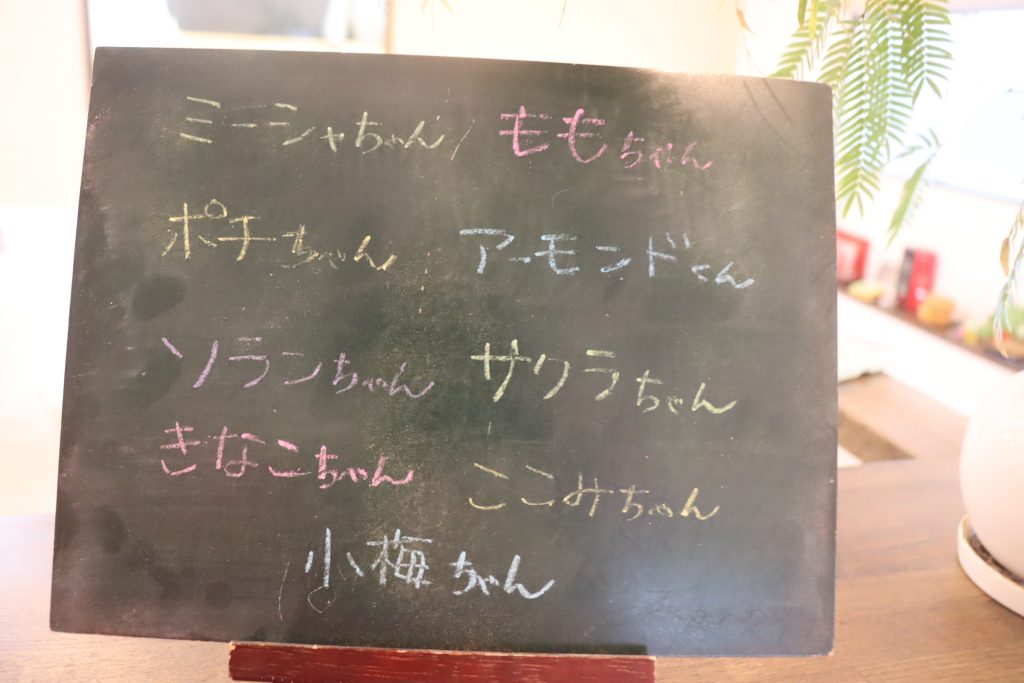 ミーシャちゃん ももちゃん
ポチちゃん アーモンドくん
ソランちゃん サクラちゃん
きなこちゃん ここみちゃん
小梅ちゃん